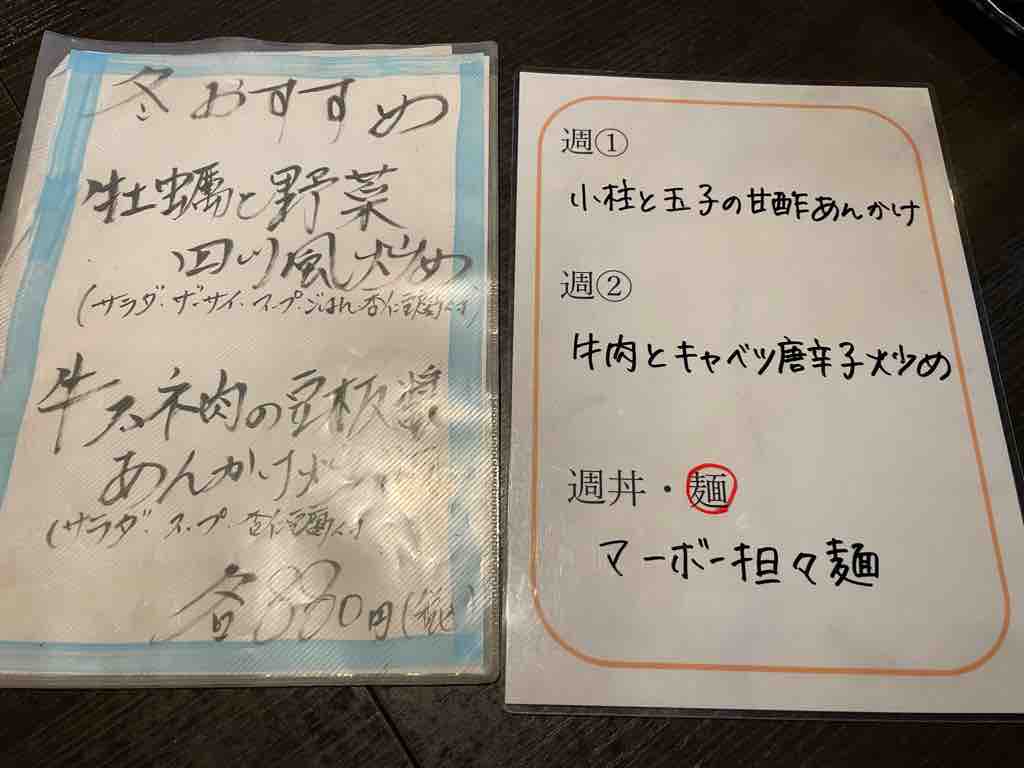 冬おすすめ
牡蠣と野菜
四川風炒め
(サラダ・ザーサイ・スープ・ごはん・杏仁豆腐付)
牛スネ肉の豆板醤
あんかけ
(サラダ・スープ・杏仁豆腐付)
各 円(税込)
週①
小柱と玉子の甘酢あんかけ
週②
牛肉とキャベツ唐辛子炒め
週丼・麺
マーボー担々麺